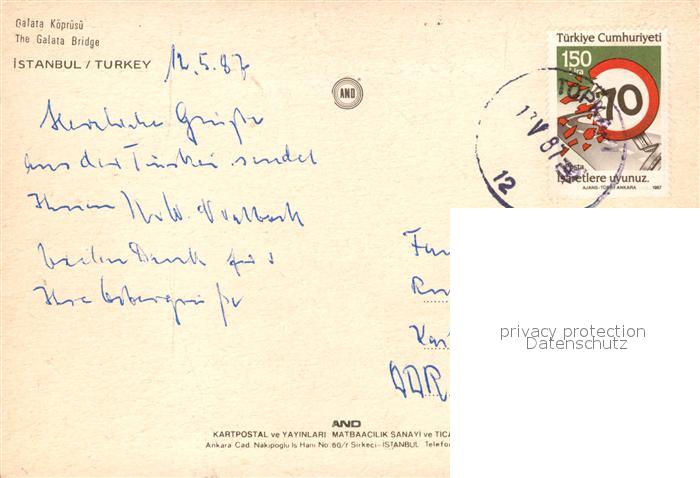 Galata Köprüsü
The Galata Bridge
İSTANBUL / TURKEY
12.5.87
AND
Türkiye Cumhuriyeti
150
Lira
70
Posta
İşaretlere uyunuz.
AJANS-TÜRK / ANKARA 1987
V 87
12
Herzliche Grüße
aus der Türkei sendet
Ihnen
vielen Dank für
Ihre Ostergrüße
Fam
DDR
privacy protection
Datenschutz
AND
KARTPOSTAL ve YAYINLARI MATBAACILIK SANAYİ ve TİCA
Ankara Cad. Nakipoğlu İş Hanı No. 60/ Sirkeci-İSTANBUL Telefo